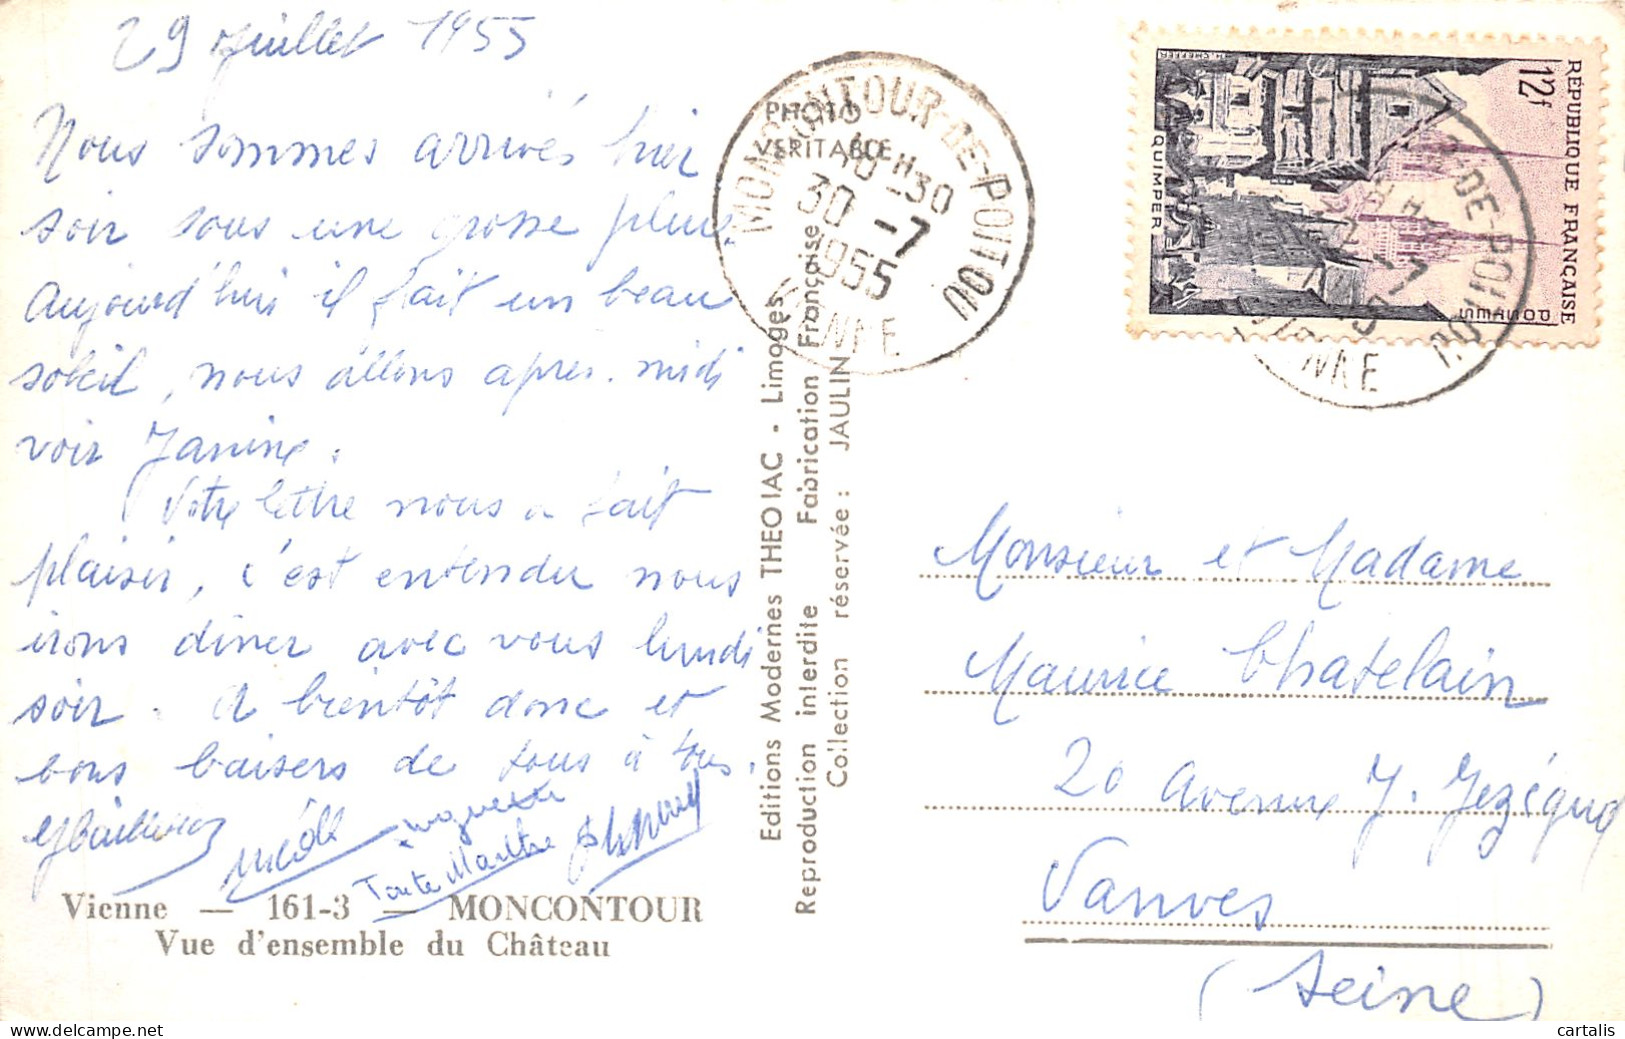 29 Juillet 1955
Nous sommes arrivés hier
soir sous une grosse pluie.
Aujourd'hui il fait un beau
soleil, nous allons après-midi
voir Janine.
Votre lettre nous a fait
plaisir, c'est entendu nous
irons diner avec vous lundi
soir. A bientôt donc et
bons baisers de tous à tous.
Huguette
Tante Marthe
Vienne — 161-3 — MONCONTOUR
Vue d'ensemble du Château
PHOTO
VERITABLE
Editions Modernes THEOJAC - Limoges
Reproduction interdite Fabrication Française
Collection réservée : JAULIN
MONCONTOUR-DE-POITOU
10H30
30-7
1955
VIENNE
RÉPUBLIQUE FRANÇAISE
12f
QUIMPER
H. CHEFFER
DE-POITOU
-7
VIENNE
Monsieur et Madame
Maurice Chatelain
20 Avenue J. Jezéquel
Vanves
(Seine)
cartalis